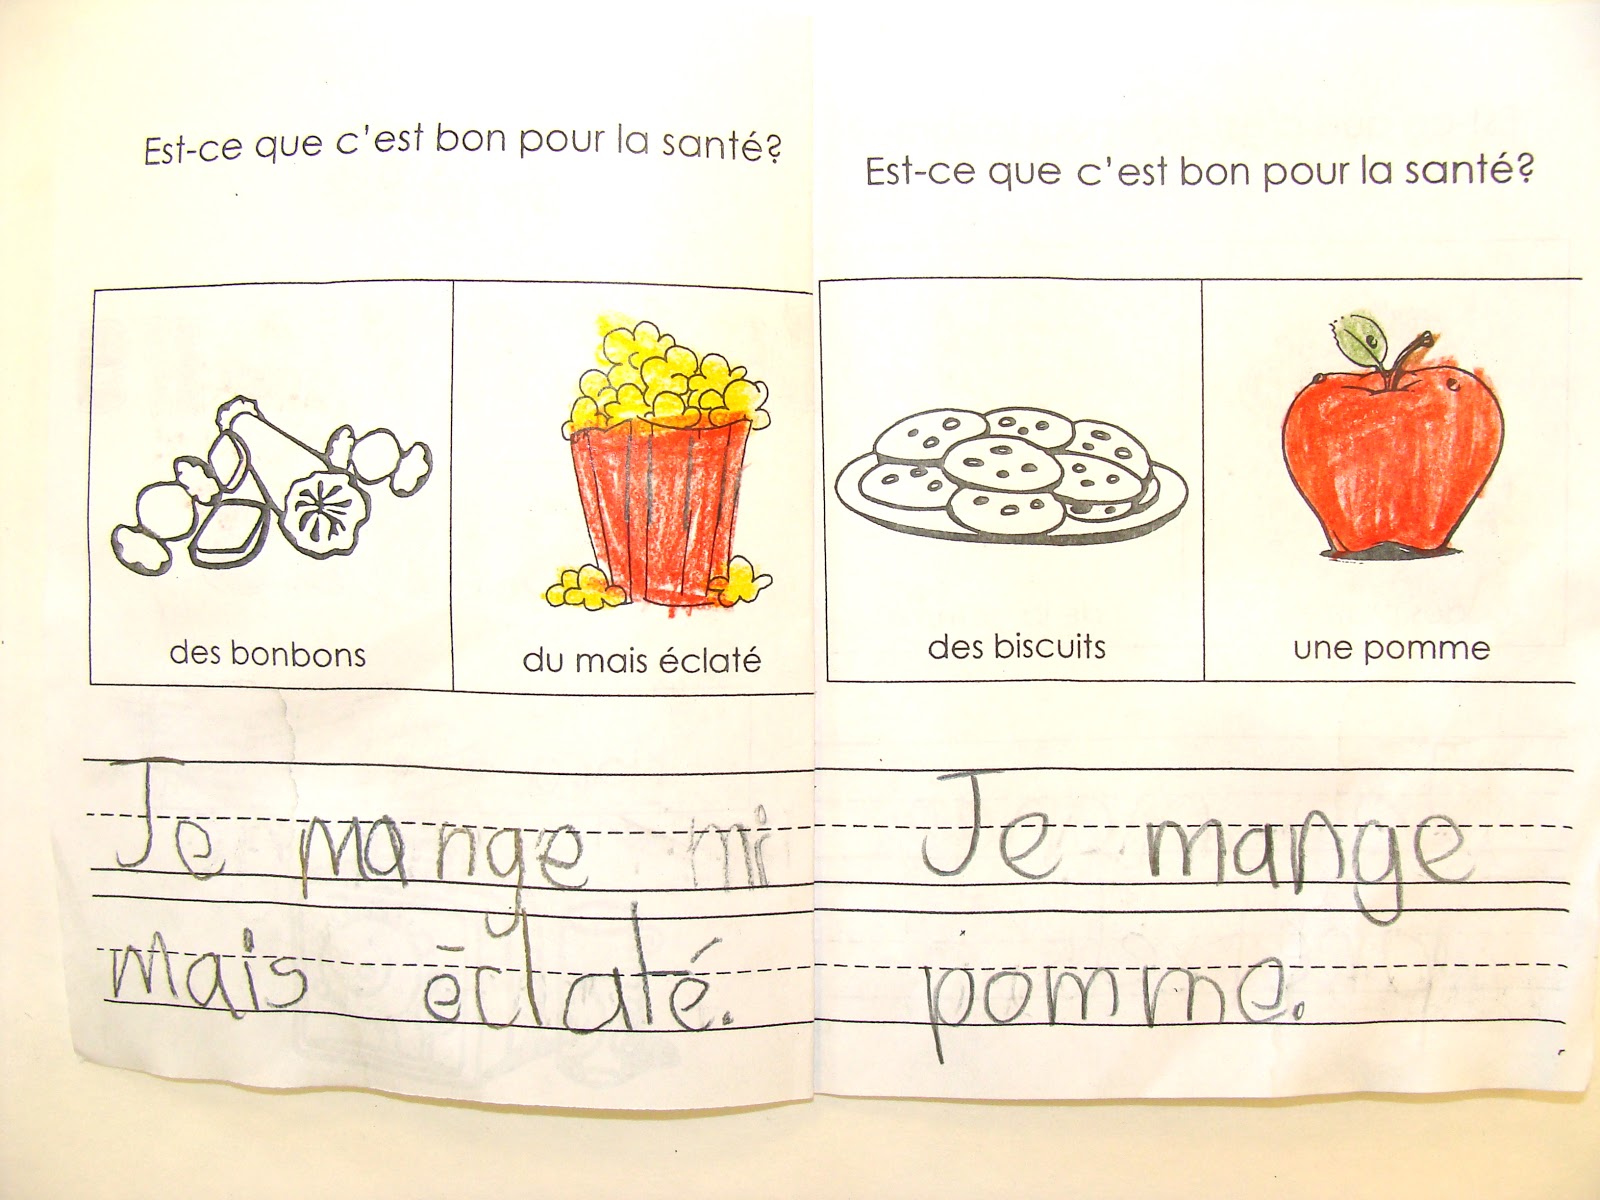 Est-ce que c'est bon pour la santé?
des bonbons
du mais éclaté
Je mange mi
mais éclaté.
Est-ce que c'est bon pour la santé?
des biscuits
une pomme
Je mange
pomme.